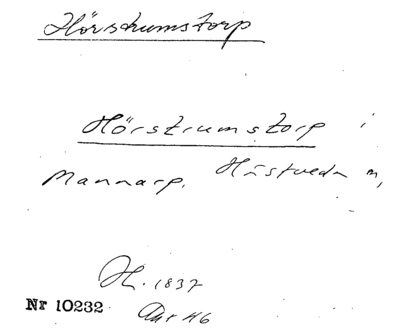 Hörstrumstorp
Hörstrumstorp i
Mannarp. Hästveda n,
H. 1837
Nr 10232